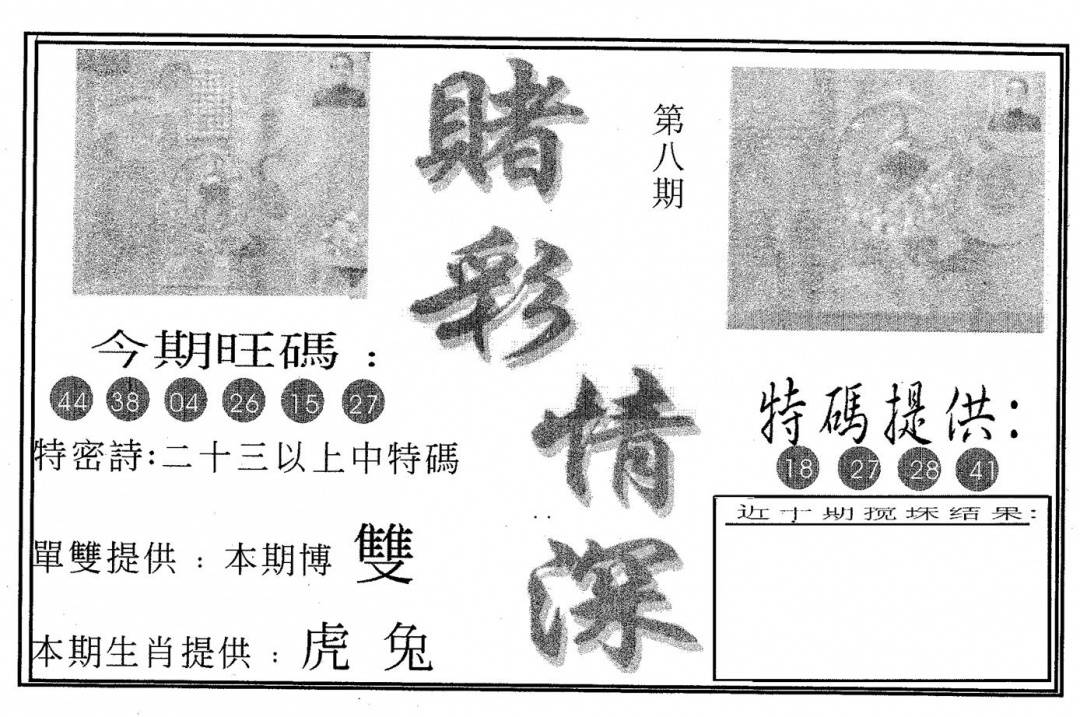 賭彩情深
第八期
今期旺碼：
44 38 04 26 15 27
特密詩:二十三以上中特碼
單雙提供：本期博 雙
本期生肖提供：虎 兔
特碼提供：
18 27 28 41
近十期搅珠结果: